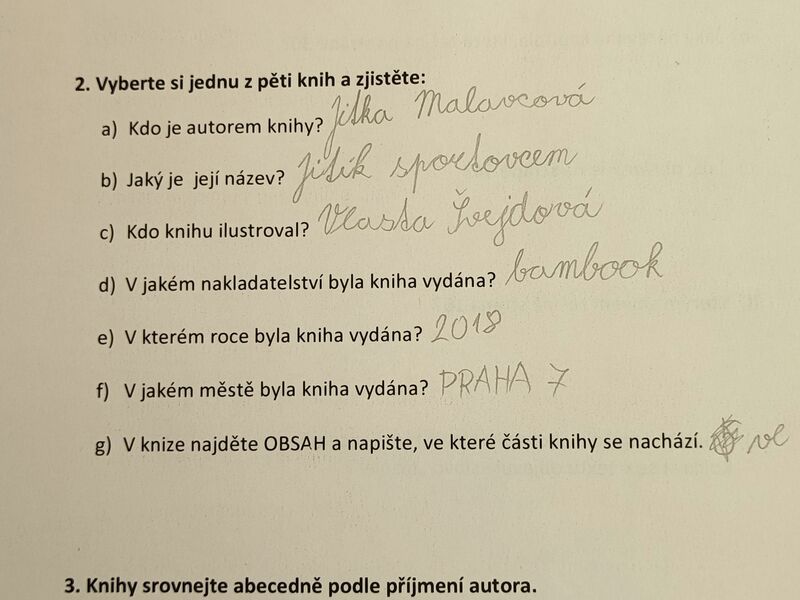 2. Vyberte si jednu z pěti knih a zjistěte:
a) Kdo je autorem knihy? Jitka Malavcová
b) Jaký je její název? Jitík sportovcem
c) Kdo knihu ilustroval? Vlasta Švejdová
d) V jakém nakladatelství byla kniha vydána? bambook
e) V kterém roce byla kniha vydána? 2018
f) V jakém městě byla kniha vydána? PRAHA 7
g) V knize najděte OBSAH a napište, ve které části knihy se nachází. ve
3. Knihy srovnejte abecedně podle příjmení autora.